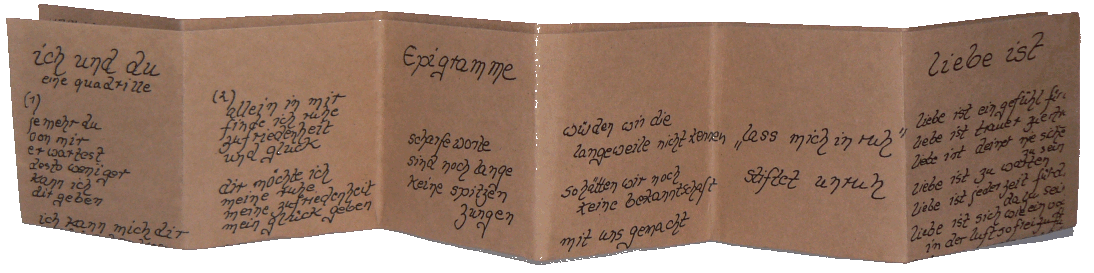 ich und du
eine quadrille
(1)
je mehr du
von mir
erwartest
desto weniger
kann ich
dir geben
ich kann mich dir
(2)
allein in mir
finde ich ruhe
zufriedenheit
und glück
dir möchte ich
meine ruhe
meine zufriedenheit
mein glück geben
Epigramme
scharfe worte
sind noch lange
keine spitzen
zungen
würden wir die
langeweile nicht kennen
schätten wir noch
keine bekanntschaft
mit uns gemacht
„lass mich in ruh"
stiftet unruh
liebe ist
liebe ist ein gefühl für
liebe ist trauer
liebe ist deiner
liebe ist zu warten
zu sein
liebe ist jederzeit für
da zu sein
liebe ist sich wie ein
in der luft so frei